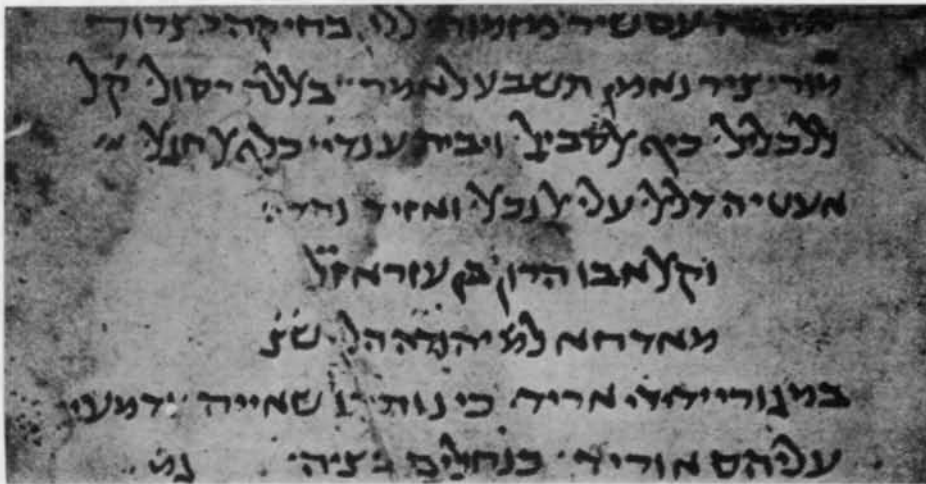 עם שיר מזמור ללוי בחיקה צרור
מור ציר נאמן תשבע לאמר בללה רסול קל
ללכליל כיף לסביל ויבית ענדי כלף לחגל
אעטיה דלל עלי לנכל ואזיד נהדי
וקאל אבו הרון בן עזרא
מאדחא למ יהודה הלוי ש׳צ׳
במגורי ידידי אריד כי נותרו שאייה ודמעי
עליהם אוריד כנחלים בציה